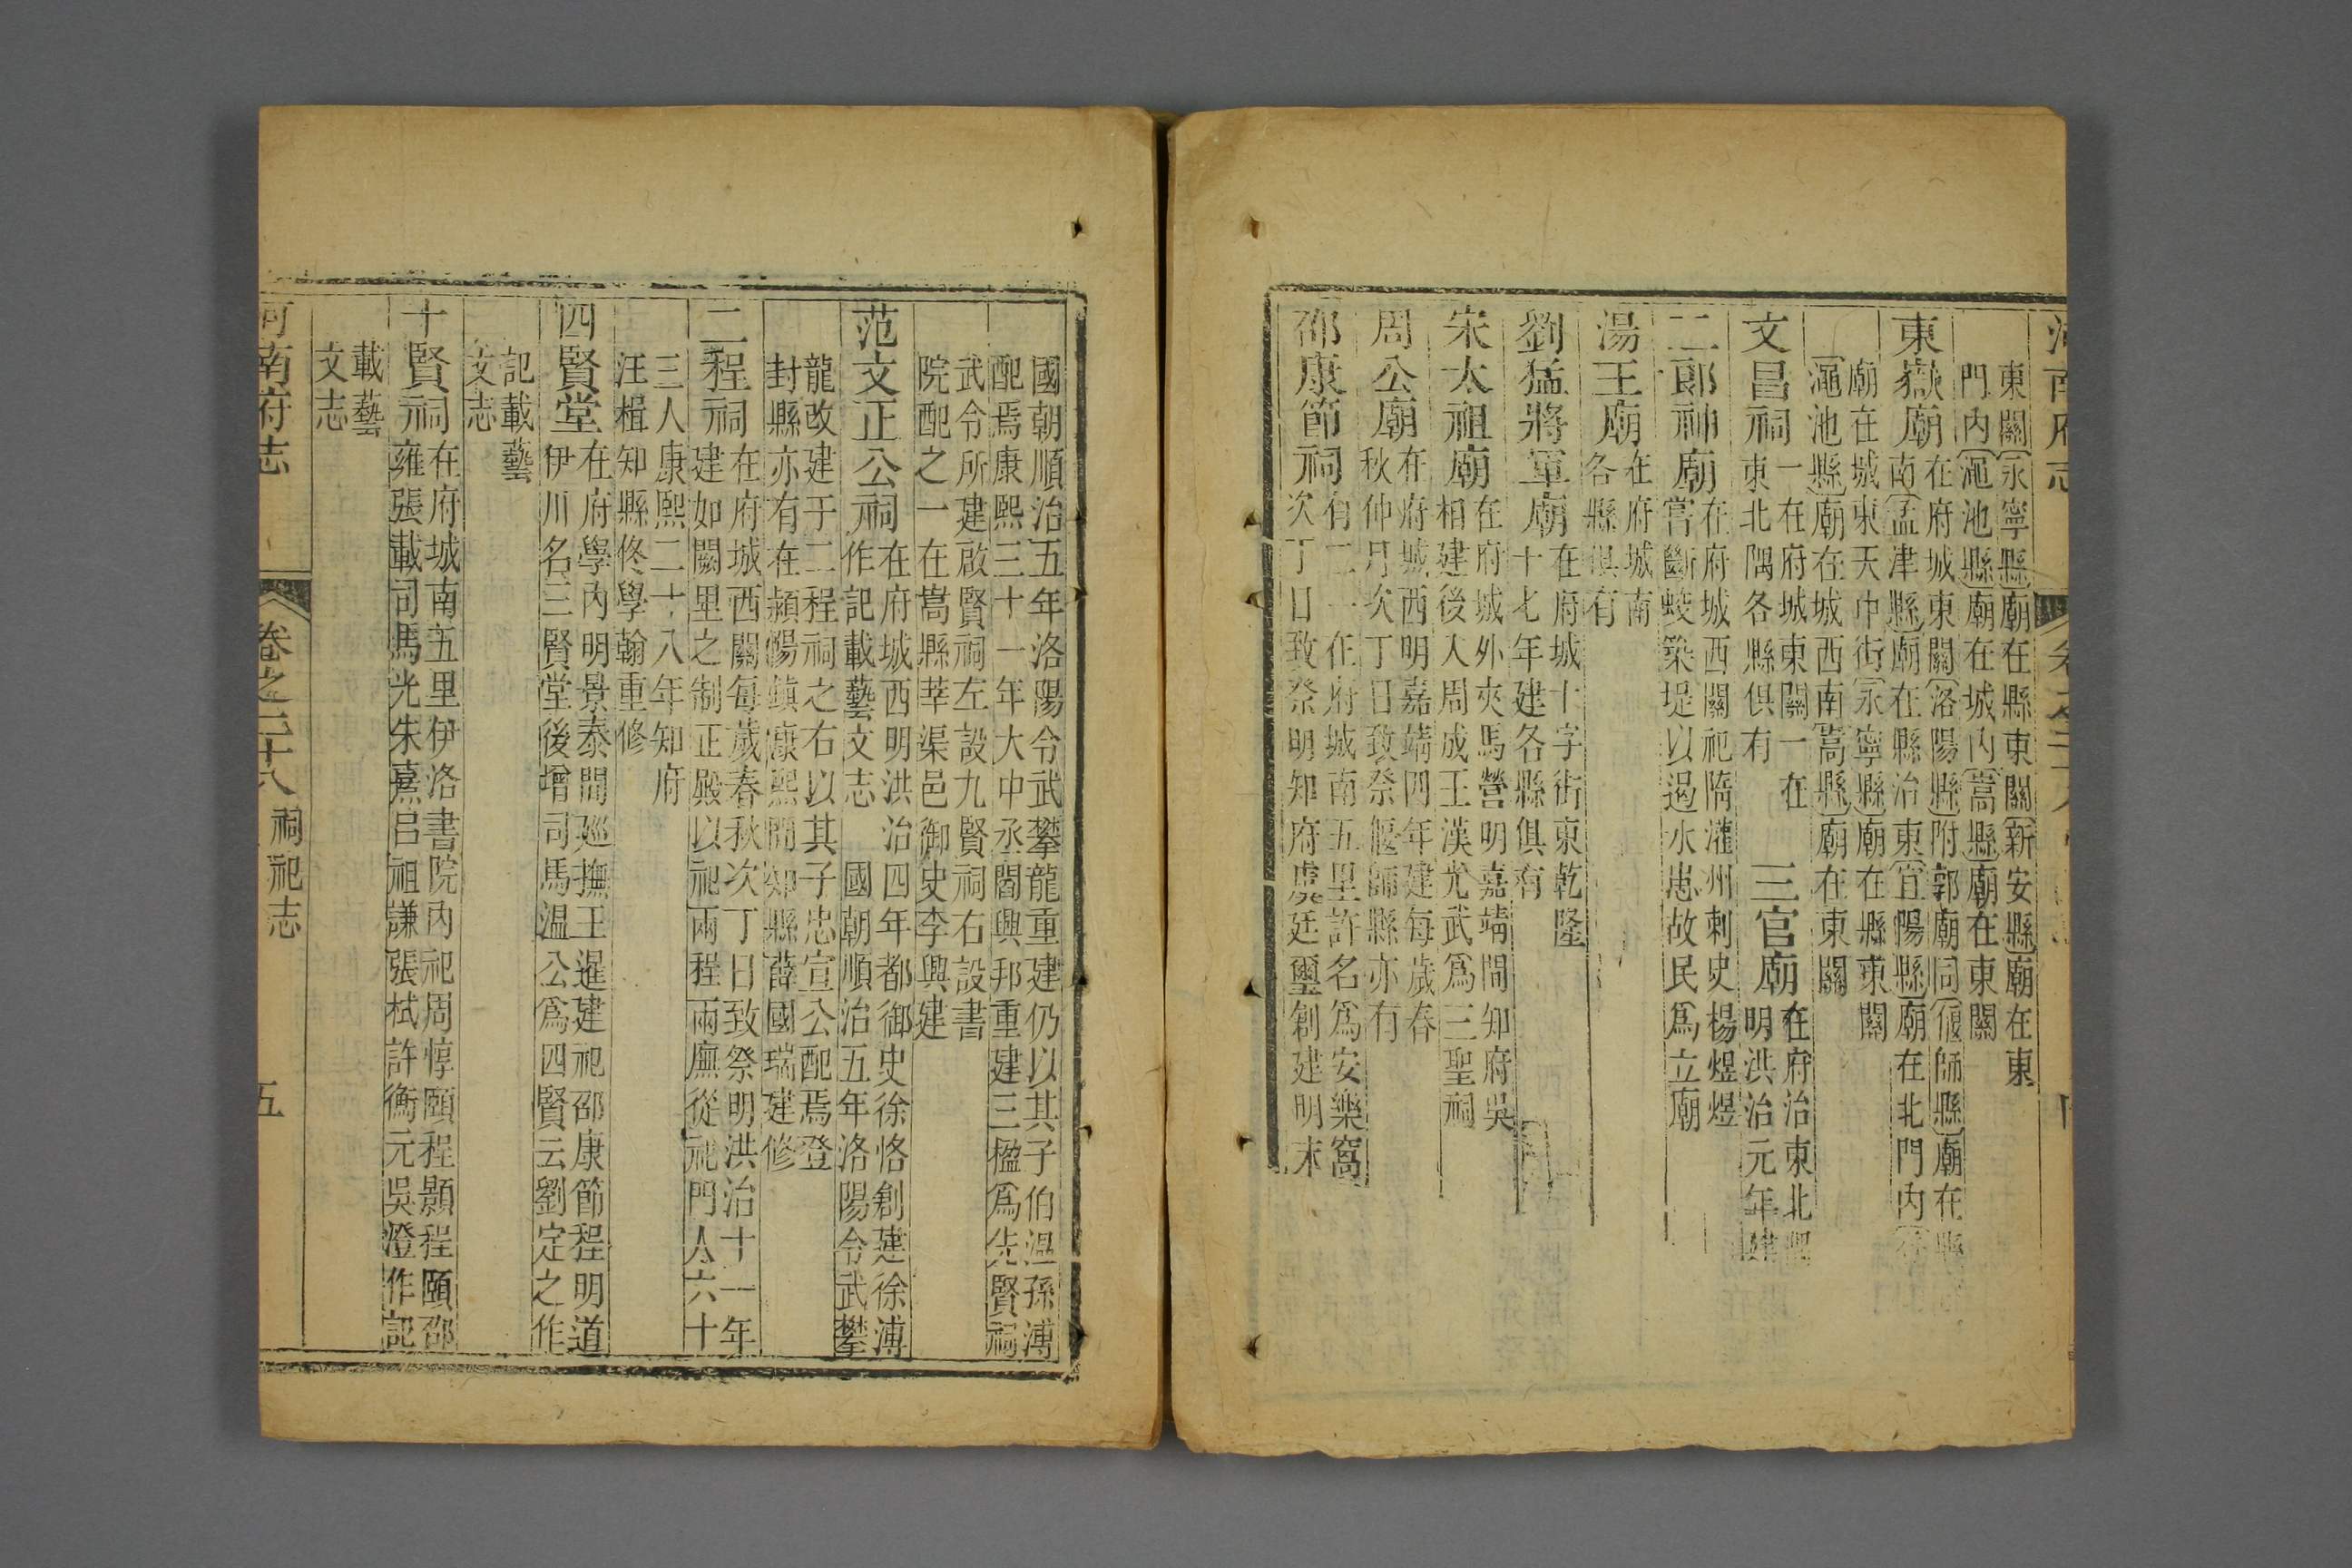 東關永寧縣廟在縣東關新安縣廟在東
門內澠池縣廟在城內嵩縣廟在東關
東嶽廟
在府城東關洛陽縣附郭廟同偃師縣廟在
南孟津縣廟在縣治東宜陽縣廟在北門內
廟在城東天中街永寧縣廟在縣東關
澠池縣廟在城西南嵩縣廟在東關
文昌祠
一在府城東關一在
東北隅各縣俱有
三官廟
在府治東北隅
明洪治元年建
二郎神廟
在府城西關祀隋灌州刺史楊煜煜
嘗斷蛟築堤以遏水患故民爲立廟
湯王廟
在府城南
各縣俱有
劉猛將軍廟
在府城十字街東乾隆
十七年建各縣俱有
宋太祖廟
在府城外夾馬營明嘉靖間知府吳
相建後人周成王漢光武爲三聖祠
周公廟
在府城西明嘉靖四年建每歲春
秋仲月次丁日致祭偃師縣亦有
邵康節祠
有二一在府城南五里許名爲安樂窩
次丁日致祭明知府虞廷璽創建明末
國朝順治五年洛陽令武攀龍重建仍以其子伯溫孫溥
配焉康熙三十一年大中丞閻興邦重建三楹爲先賢祠
武令所建啟賢祠左設九賢祠右設書
院配之一在嵩縣莘渠邑御史李興建
范文正公祠
在府城西明洪治四年都御史徐恪創建徐溥
作記載藝文志 國朝順治五年洛陽令武攀
龍改建于二程祠之右以其子忠宣公配焉登
封縣亦有在潁陽鎮康熙間知縣薛國瑞建修
二程祠
在府城西關每歲春秋次丁日致祭明洪治十一年
建如闕里之制正殿以祀兩程兩廡從祀門人六十
三人康熙二十八年知府
汪楫知縣佟學翰重修
四賢堂
在府學內明景泰間巡撫王暹建祀邵康節程明道
伊川名三賢堂後增司馬溫公爲四賢云劉定之作
記載藝
文志
十賢祠
在府城南五里伊洛書院內祀周惇頤程顥程頤邵
雍張載司馬光朱熹呂祖謙張栻許衡元吳澄作記
載藝
文志
河南府志
卷之二十八
祠祀志
五